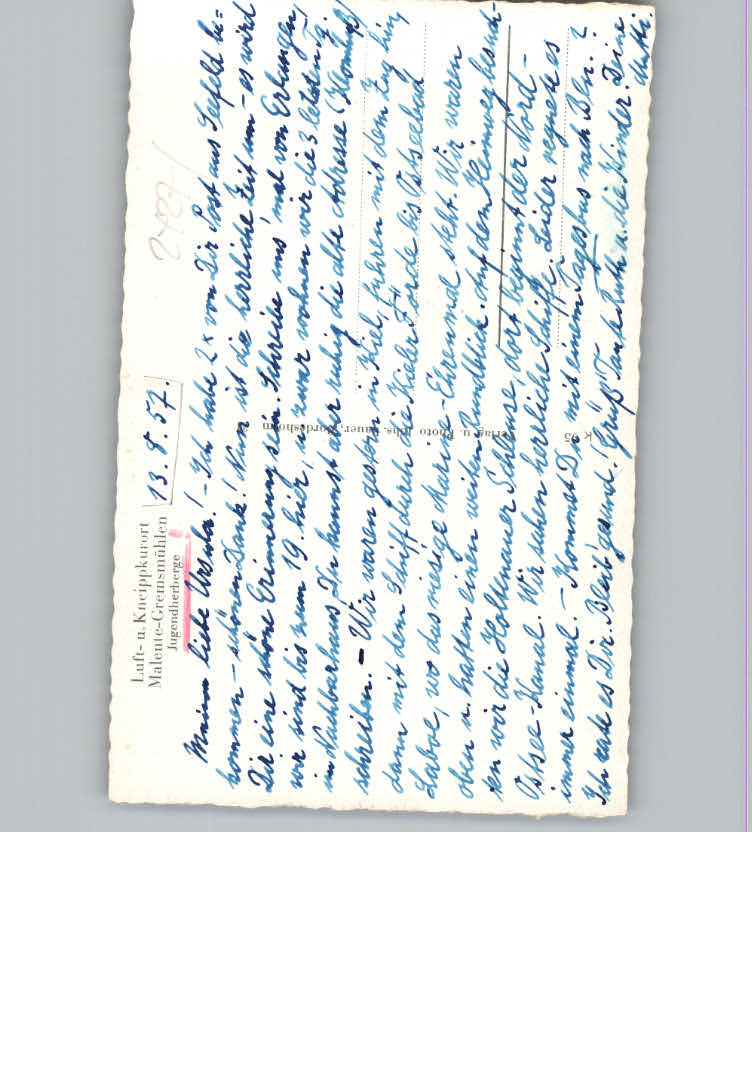 Luft- u. Kneippkurort
Malente-Gremsmühlen
Jugendherberge
13.8.57.
Meine liebe Ursula! - Ich habe 2x von Dir Post aus Seefeld be=
kommen - schönen Dank! Nun ist die herrliche Zeit um - es wird
Dir eine schöne Erinnerung sein. Schreibe uns mal von Erlangen,
wir sind bis zum 19. hier, u. zwar wohnen wir die 3 letzten Tg.
im Nachbarhaus. Du kannst aber ruhig die alte Adresse
schreiben. - Wir waren gestern in Kiel, fuhren mit dem Zug hin,
dann mit dem Schiff durch die Kieler Förde bis Ostseebad
Laboe, wo das riesige Marine-Ehrenmal steht. Wir waren
oben u. hatten einen weiten Rundblick. Auf dem Heimweg besuch-
ten wir die Holtenauer Schleuse, dort beginnt der Nord-
Ostsee-Kanal. Wir sahen herrliche Schiffe. Leider regnete es
immer einmal. - Kommst Du mit einem Tagesbus nach Bln.?
Ich rate es Dir. Bleib' gesund. Grüß' Tante Ruth u. die Kinder. Deine
Verlag u. Photo Johs. Bauer, Bordesholm
K 95